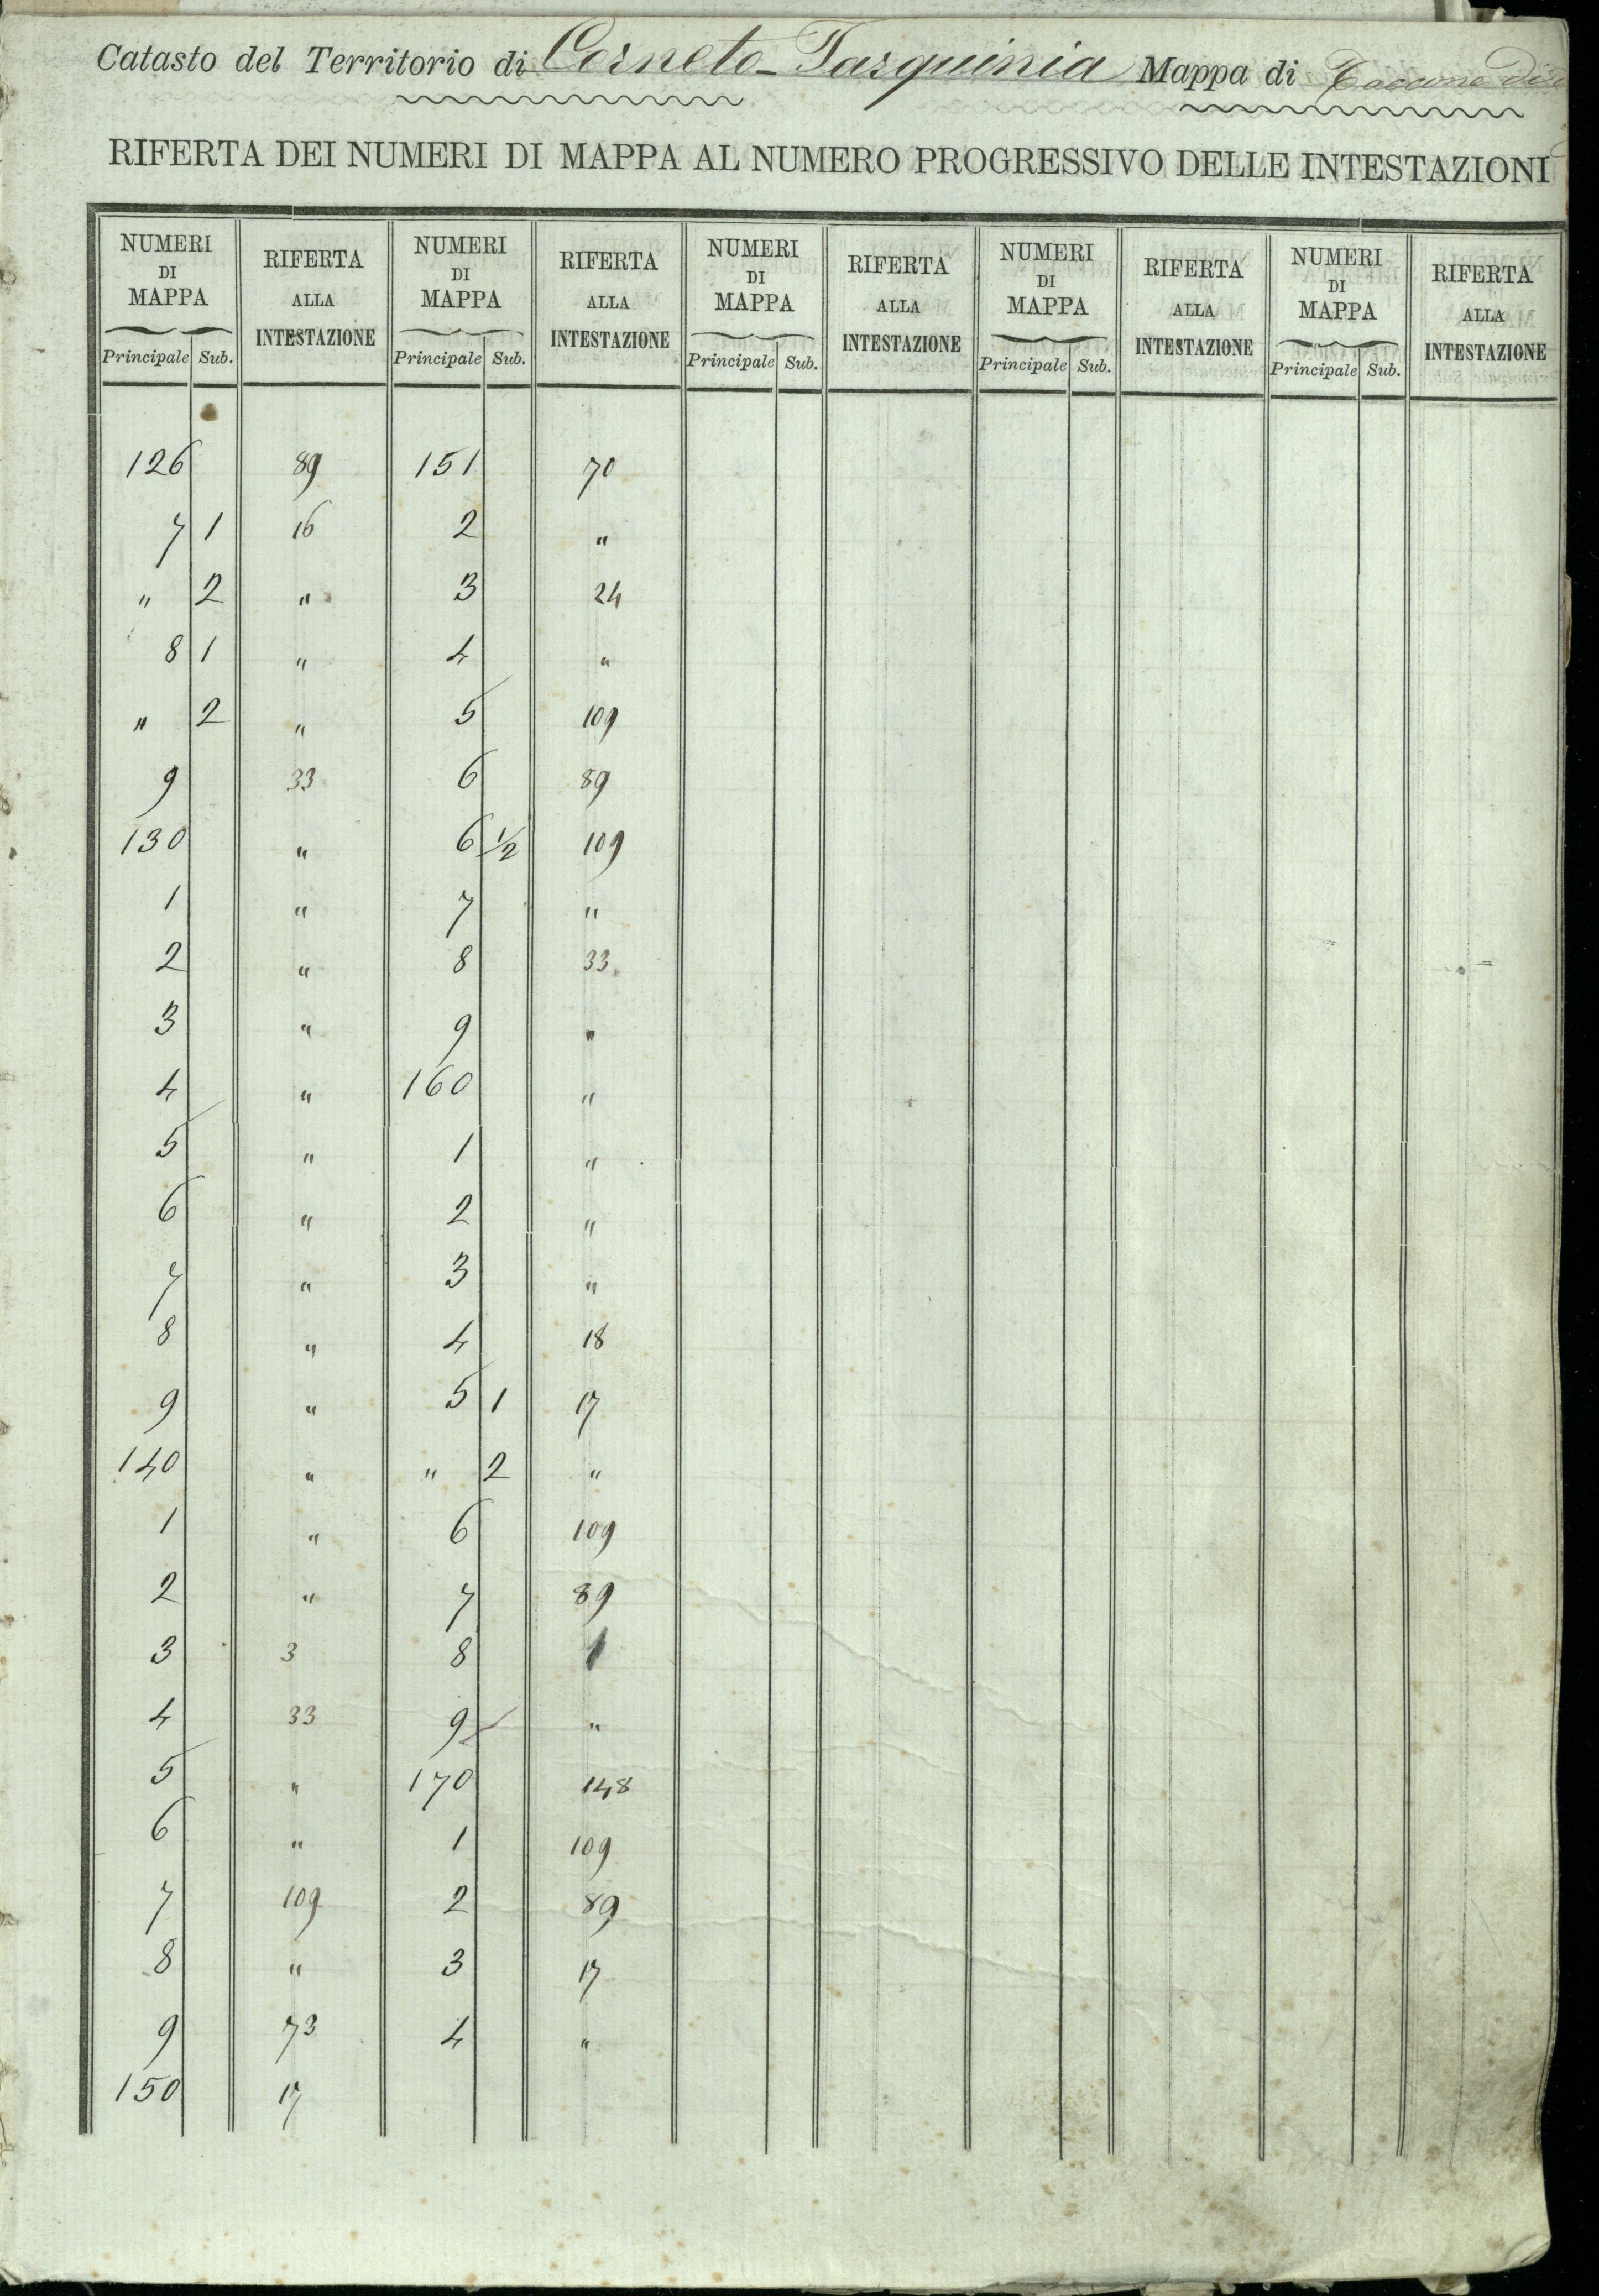 Catasto del Territorio di Corneto-Tarquinia Mappa di
RIFERTA DEI NUMERI DI MAPPA AL NUMERO PROGRESSIVO DELLE INTESTAZIONI
NUMERI DI MAPPA RIFERTA ALLA INTESTAZIONE NUMERI DI MAPPA RIFERTA ALLA INTESTAZIONE NUMERI DI MAPPA RIFERTA ALLA INTESTAZIONE NUMERI DI MAPPA RIFERTA ALLA INTESTAZIONE NUMERI DI MAPPA RIFERTA ALLA INTESTAZIONE
Principale Sub. Principale Sub. Principale Sub. Principale Sub. Principale Sub.
126 89 151 70
7 1 16 2 "
" 2 " 3 24
8 1 " 4 "
" 2 " 5 109
9 33 6 89
130 " 6 1/2 109
1 " 7 "
2 " 8 33
3 " 9 "
4 " 160 "
5 " 1 "
6 " 2 "
7 " 3 "
8 " 4 18
9 " 5 1 17
140 " " 2 "
1 " 6 109
2 " 7 89
3 3 8 1
4 33 9 "
5 " 170 148
6 " 1 109
7 109 2 89
8 " 3 17
9 73 4 "
150 17